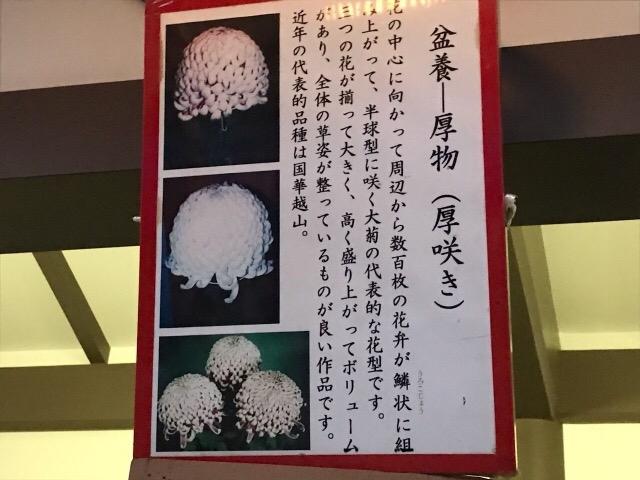 盆養―厚物（厚咲き）
花の中心に向かって周辺から数百枚の花弁が鱗状に組
うろこじょう
み上がって、半球型に咲く大菊の代表的な花型です。
三つの花が揃って大きく、高く盛り上がってボリューム
があり、全体の草姿が整っているものが良い作品です。
近年の代表的品種は国華越山。